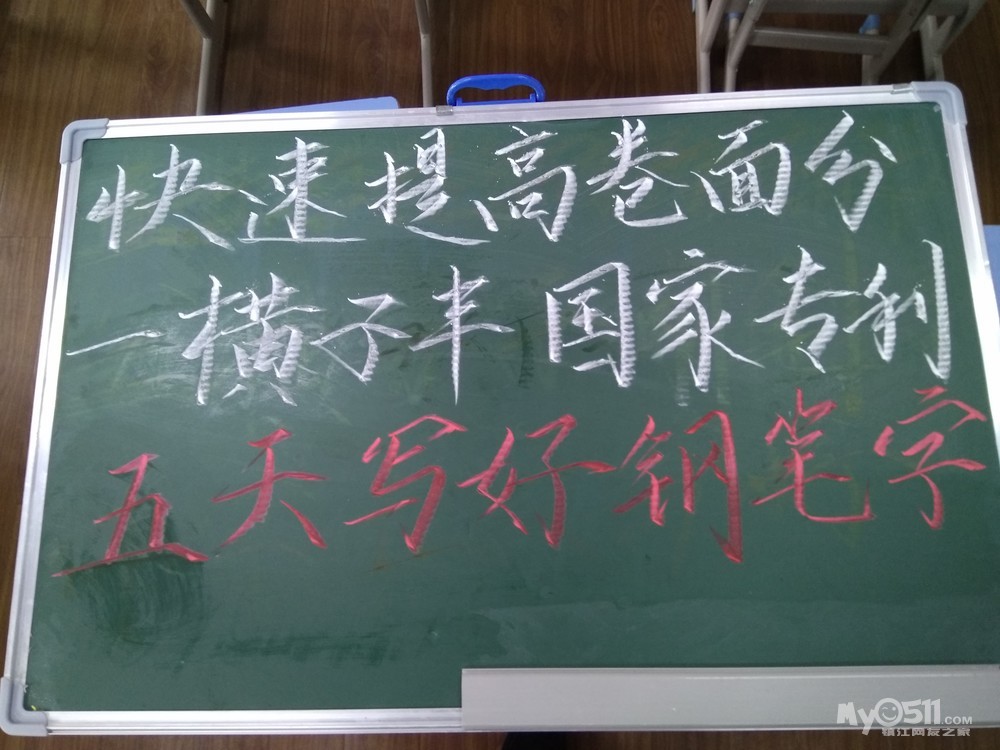 快速提高卷面分
一横子丰国家专利
五天写好钢笔字
My0511.COM
镇江网友之家